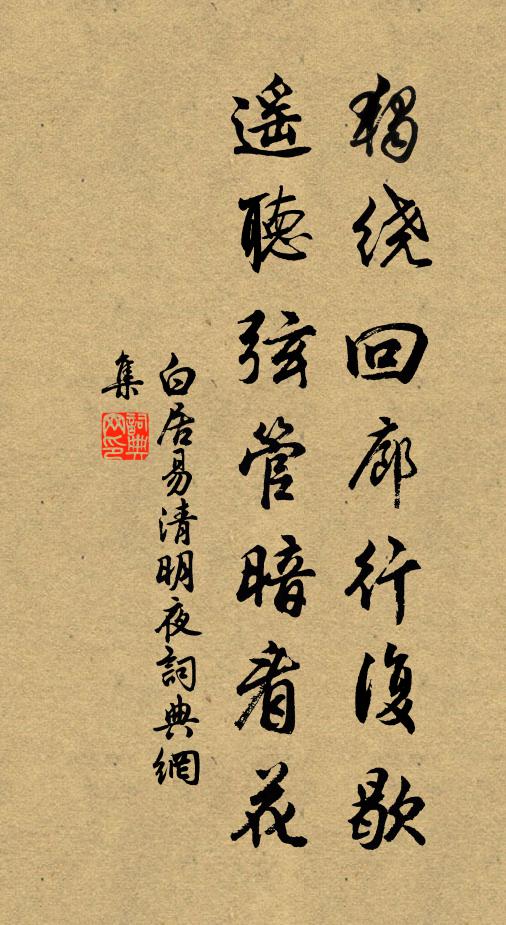 獨绕回廊行復歇
遥聽弦管暗看花
白居易清明夜詞典網
集
詞典
网印